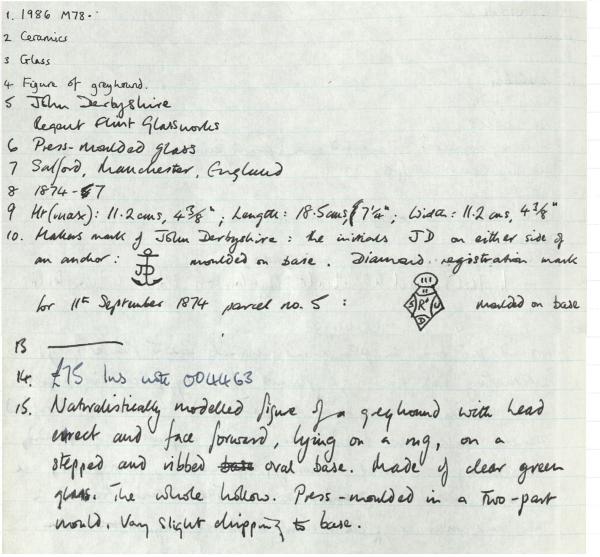 1. 1986 M78.
2 Ceramics
3 Glass
4 Figure of greyhound.
5 John Derbyshire
Regent Flint Glassworks
6 Press-moulded glass
7 Salford, Manchester, England
8 1874-7
9 Ht(max): 11.2 cms, 4 3/8"; Length: 18.5cms, 7¼"; Width: 11.2 cms, 4 3/8"
10. Makers mark of John Derbyshire: the initials JD on either side of
an anchor: JD moulded on base. Diamond registration mark
for 11th September 1874 parcel no. 5: III 5 Rd U D moulded on base
13
14. £75 Ins 004463
15. Naturalistically modelled figure of a greyhound with head
errect and face forward, lying on a rug, on a
stepped and ribbed base oval base. Made of clear green
glass. The whole hollow. Press-moulded in a two-part
mould. Very slight chipping to base.